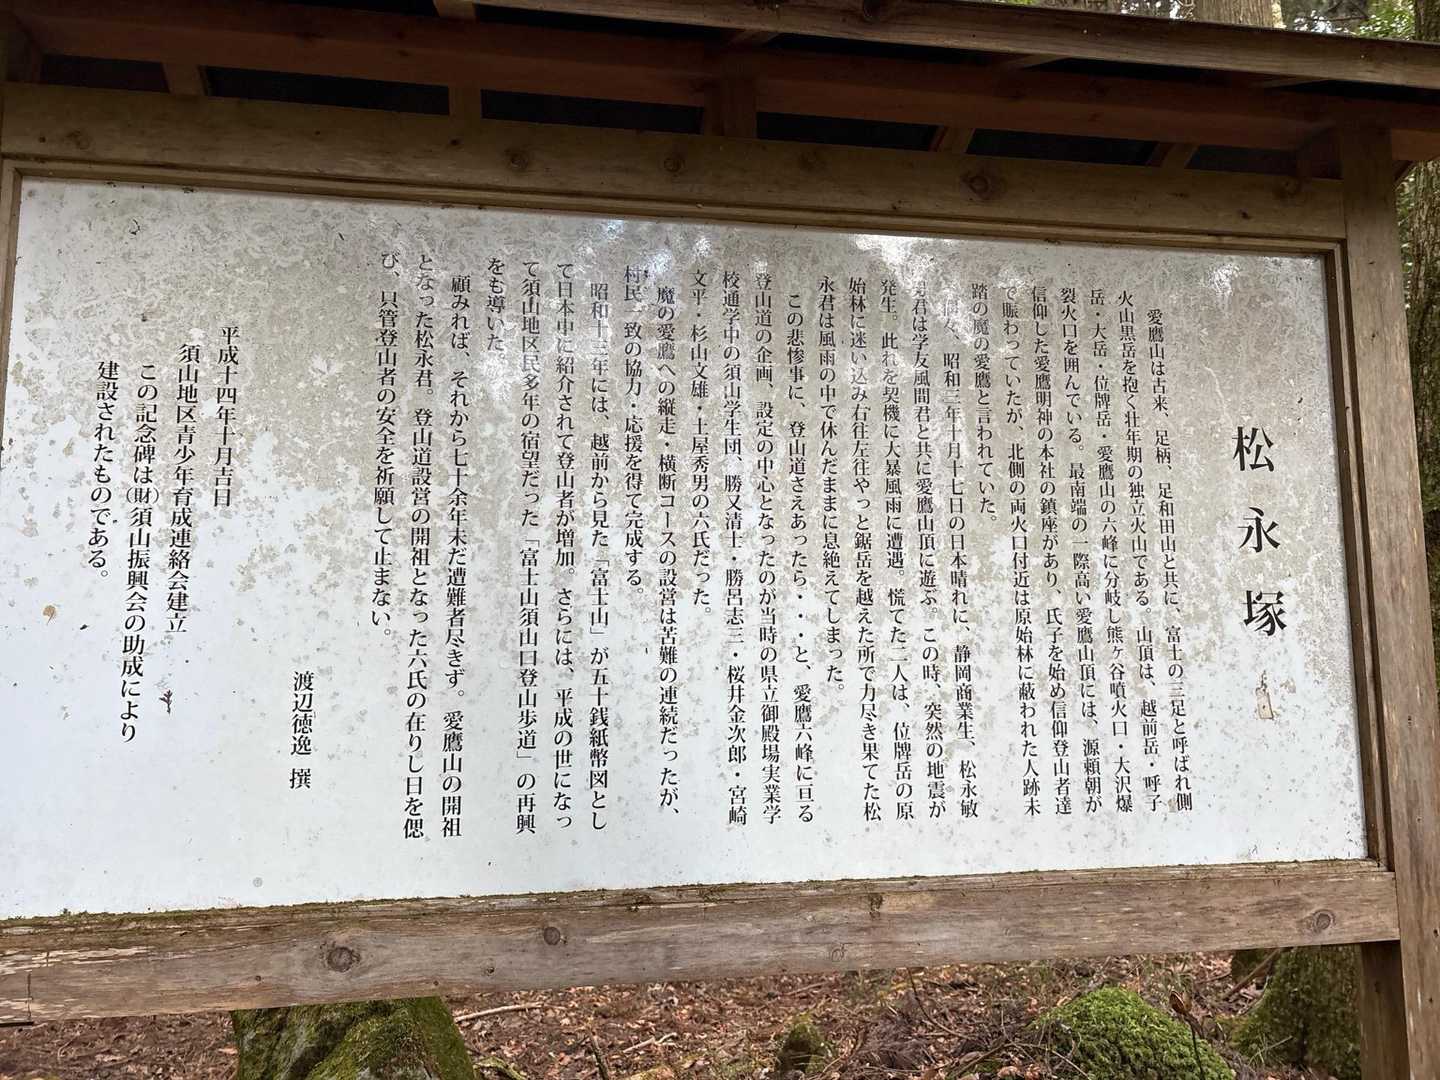 松永塚
愛鷹山は古来、足柄、足和田山と共に、富士の三足と呼ばれ側
火山黒岳を抱く壮年期の独立火山である。山頂は、越前岳・呼子
岳・大岳・位牌岳・愛鷹山の六峰に分岐し熊ヶ谷噴火口・大沢爆
裂火口を囲んでいる。最南端の一際高い愛鷹山頂には、源頼朝が
信仰した愛鷹明神の本社の鎮座があり、氏子を始め信仰登山者達
で賑わっていたが、北側の両火口付近は原始林に蔽われた人跡未
踏の魔の愛鷹と言われていた。
偶々、昭和三年十月十七日の日本晴れに、静岡商業生、松永敏
男君は学友風間君と共に愛鷹山頂に遊ぶ。この時、突然の地震が
発生。此れを契機に大暴風雨に遭遇。慌てた二人は、位牌岳の原
始林に迷い込み右往左往やっと鋸岳を越えた所で力尽き果てた松
永君は風雨の中で休んだままに息絶えてしまった。
この悲惨事に、登山道さえあったら・・・と、愛鷹六峰に亘る
登山道の企画、設定の中心となったのが当時の県立御殿場実業学
校通学中の須山学生団、勝又清士・勝呂志三・桜井金次郎・宮崎
文平・杉山文雄・土屋秀男の六氏だった。
魔の愛鷹への縦走・横断コースの設営は苦難の連続だったが、
村民一致の協力・応援を得て完成する。
昭和十三年には、越前から見た「富士山」が五十銭紙幣図とし
て日本中に紹介されて登山者が増加。さらには、平成の世になっ
て須山地区民多年の宿望だった「富士山須山口登山歩道」の再興
をも導いた。
顧みれば、それから七十余年未だ遭難者尽きず。愛鷹山の開祖
となった松永君。登山道設営の開祖となった六氏の在りし日を偲
び、只管登山者の安全を祈願して止まない。
渡辺徳逸 撰
平成十四年十月吉日
須山地区青少年育成連絡会建立
この記念碑は(財)須山振興会の助成により
建設されたものである。